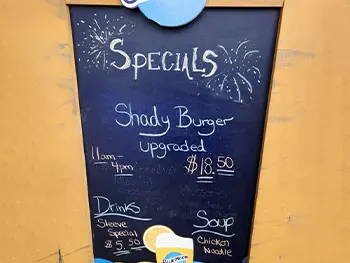 Specials
Shady Burger
upgraded
11am-
4pm
$18.50
Drinks
Sleeve
Special
$5.50
Soup
Chicken
Noodle
BLUE MOON